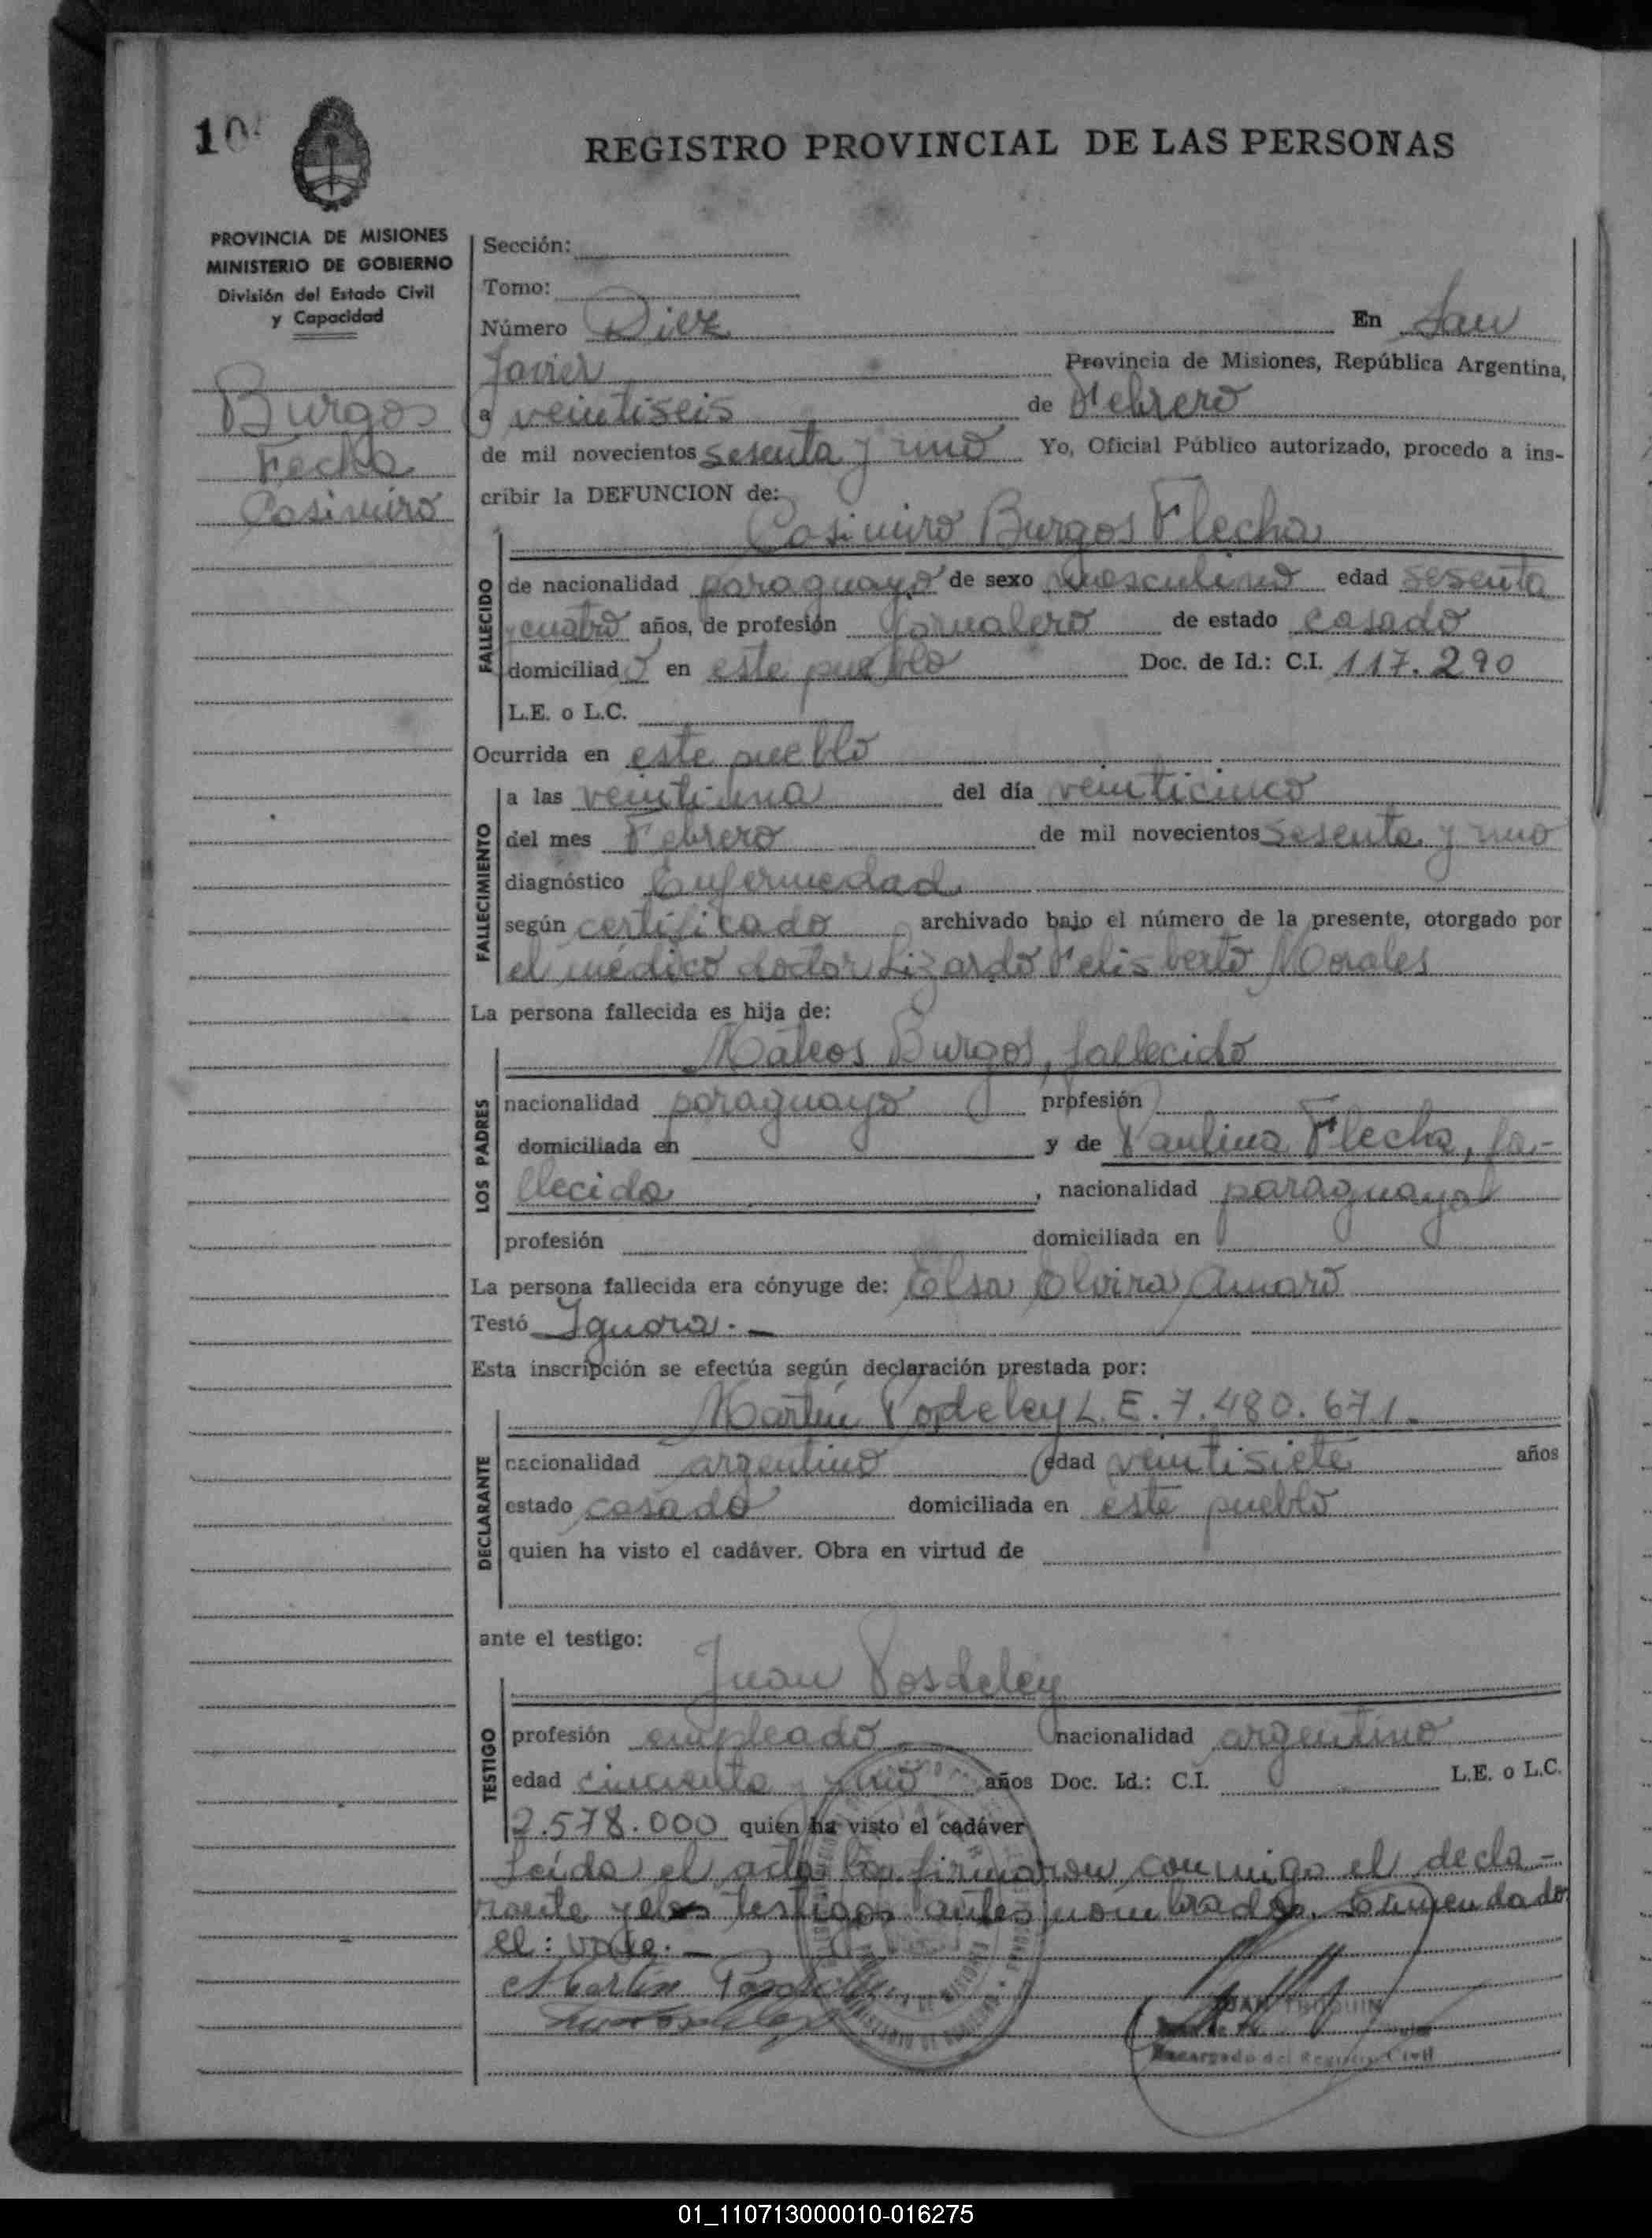 10
REGISTRO PROVINCIAL DE LAS PERSONAS
PROVINCIA DE MISIONES
MINISTERIO DE GOBIERNO
División del Estado Civil
y Capacidad
Burgos
Fecha
Casimiro
Sección:
Tomo:
Número Diez En San
Javier Provincia de Misiones, República Argentina,
a veintiseis de Febrero
de mil novecientos sesenta y uno Yo, Oficial Público autorizado, procedo a ins-
cribir la DEFUNCION de:
Casimiro Burgos Flecha
FALLECIDO
de nacionalidad paraguayo de sexo masculino edad sesenta
y cuatro años, de profesión jornalero de estado casado
domiciliado en este pueblo Doc. de Id.: C.I. 117.290
L.E. o L.C.
Ocurrida en este pueblo
FALLECIMIENTO
a las veintiuna del día veinticinco
del mes Febrero de mil novecientos sesenta y uno
diagnóstico Enfermedad
según certificado archivado bajo el número de la presente, otorgado por
el médico doctor Lizardo Felisberto Morales
La persona fallecida es hija de:
LOS PADRES
Mateos Burgos, fallecido
nacionalidad paraguayo profesión
domiciliada en y de Paulina Flecha, fa-
llecida, nacionalidad paraguaya
profesión domiciliada en
La persona fallecida era cónyuge de: Elsa Elvira Amaro
Testó Ignora. —
Esta inscripción se efectúa según declaración prestada por:
DECLARANTE
Martín Podeley L.E. 7.480.671.
nacionalidad argentino edad veintisiete años
estado casado domiciliada en este pueblo
quien ha visto el cadáver. Obra en virtud de
ante el testigo:
Juan Posdeley
TESTIGO
profesión empleado nacionalidad argentino
edad cincuenta y uno años Doc. Id.: C.I. L.E. o L.C.
2.578.000 quien ha visto el cadáver
Leída el acta la firmaron conmigo el decla-
rante y el testigos antes nombrados. Enmendado
el: vale. —
Martin
JUAN
Encargado del Registro Civil
01_110713000010-016275